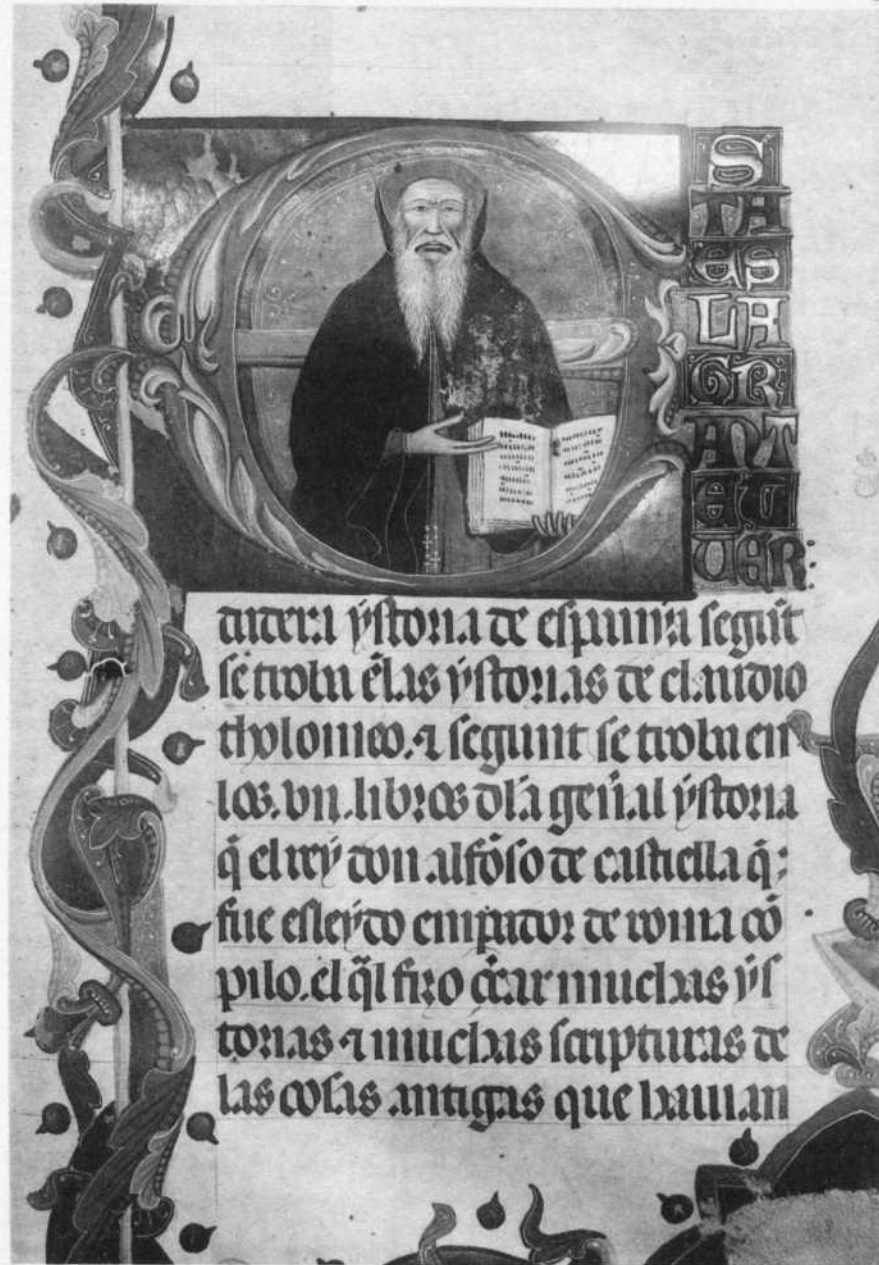 E
S
TA
ES
LA
GR
ANT
ET
UER:
dadera ẏstoria de espanẏa segūt
se troba ēlas ẏstorias de claudio
tholomeo. ⁊ segunt se troba en
los .vii. libros dla gen̄al ẏstoria
q̄ el reẏ don alfōso de castiella q̄:
fue esleẏdo empador de roma cō
pilo. el q̄l fizo c̄car muchas ẏs
torias ⁊ muchas scripturas de
las cosas antigas que hauian